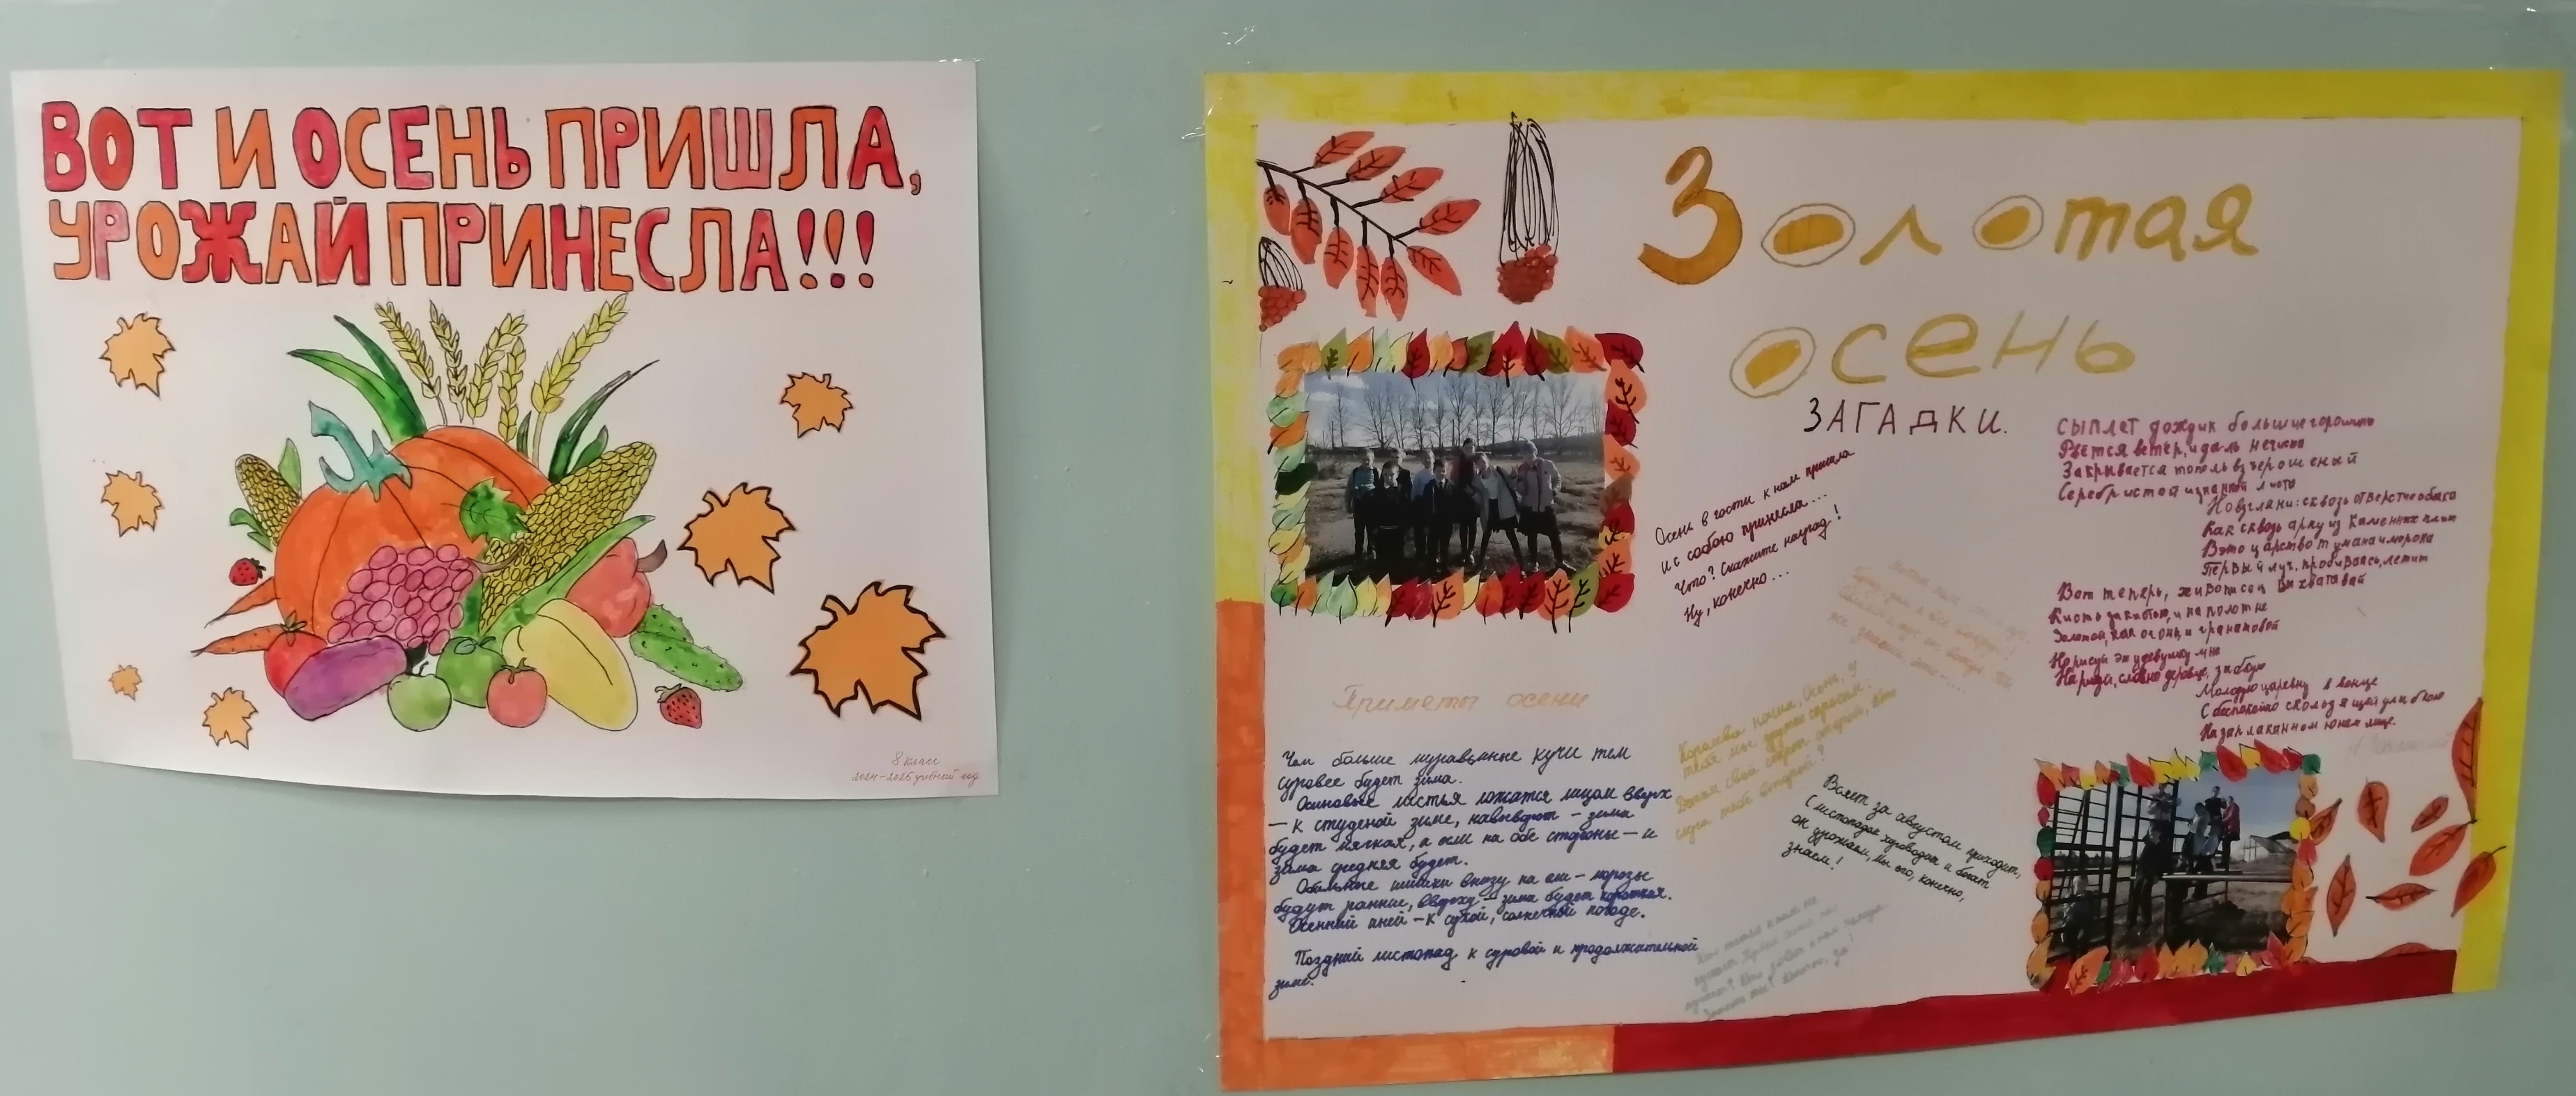 ВОТ И ОСЕНЬ ПРИШЛА,
УРОЖАЙ ПРИНЕСЛА!!!
8 класс
2024-2025 учебный год
Золотая
осень
ЗАГАДКИ.
Осень в гости к нам пришла
и с собою принесла....
Что? Скажите наугад!
Ну, конечно...
Приметы осени
Чем больше муравьиные кучи тем
суровее будет зима.
Осиновые листья ложатся лицом вверх
— к студеной зиме, - зима
будет мягкая, а если на обе стороны — и
зима средняя будет.
Обильные шишки внизу на ели - морозы
будут ранние, вверху - зима будет короткая.
Осенний иней - к сухой, солнечной погоде.
Поздний листопад к суровой и продолжительной
зиме.
Королева наша, Осень,
тебя мы дружно спросим:
Детям свой секрет открой,
слуга тебе второй?
Вслед за августом приходит,
С листопадом хороводит и богат
он урожаем, мы его, конечно,
знаем!
СЫПЛЕТ дождик большие горошины
Рвется ветер, и даль нечиста
Закрывается тополь взъерошеный
Серебристой изнанкой листа
Но взгляни: сквозь отверстие облака
Как сквозь арку из каменных плит
В это царство тумана и морока
Первый луч, пробиваясь, летит
Вот теперь, живописец
Кисть за кистью, и на полотне
Золотой, как огонь, и гранатовой
Нарисуй эту девушку мне
Нарисуй, словно деревце,
Молодую царевну в венце
С беспокойно скользящей улыбкою
На заплаканном юном лице.